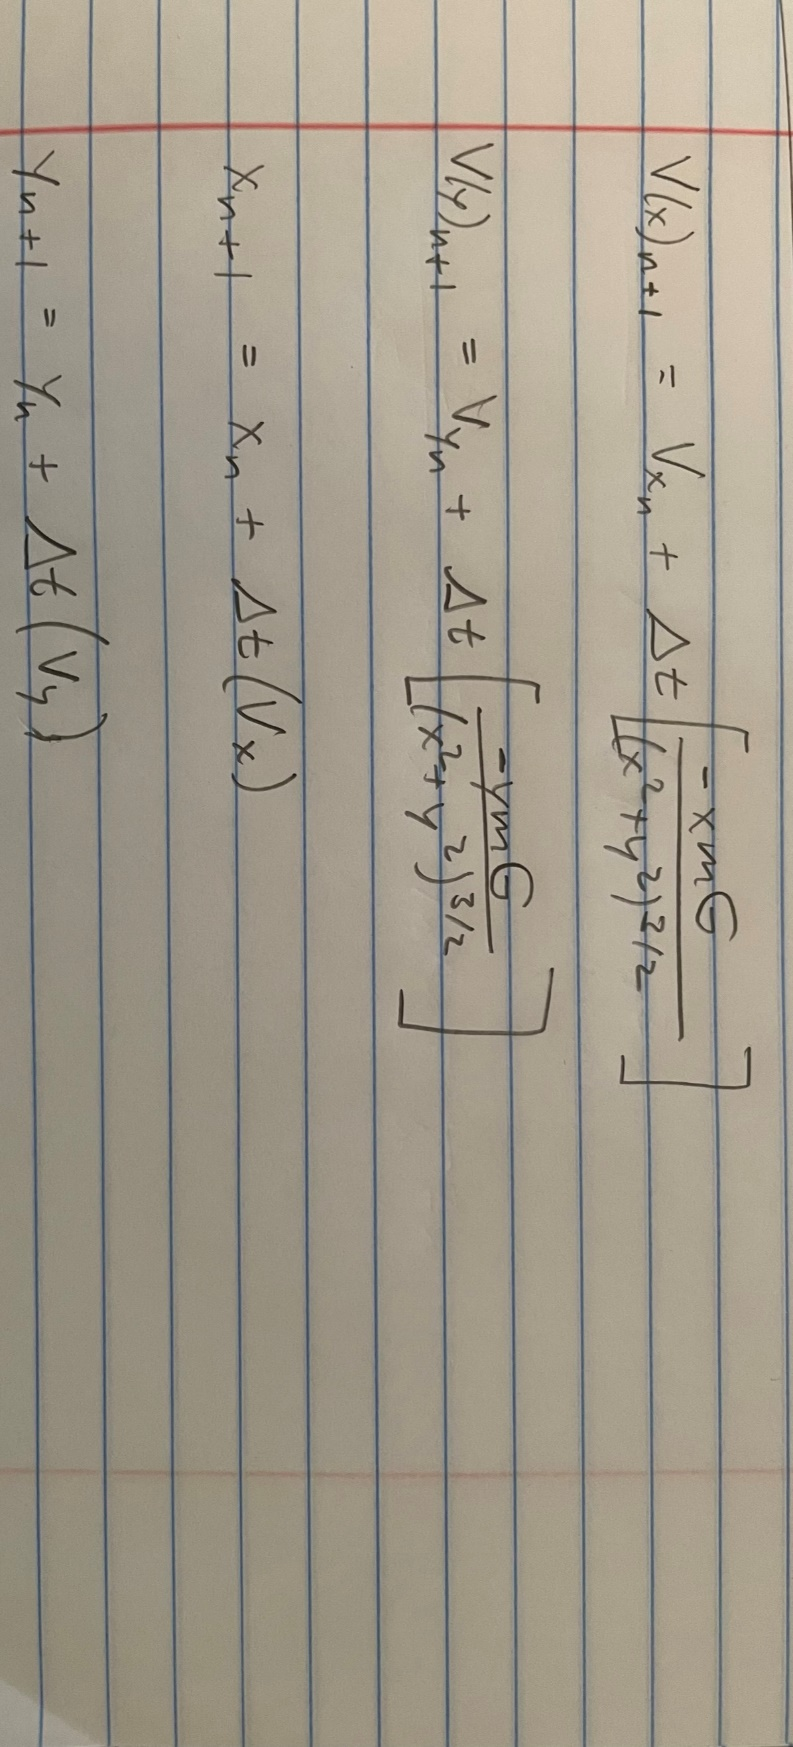 V(x)ₙ₊₁ = Vₓₙ + Δt [ -xmG / (x² + y²)^3/2 ]
V(y)ₙ₊₁ = V_yₙ + Δt [ -ymG / (x² + y²)^3/2 ]
xₙ₊₁ = xₙ + Δt (Vₓ)
yₙ₊₁ = yₙ + Δt (V_y)